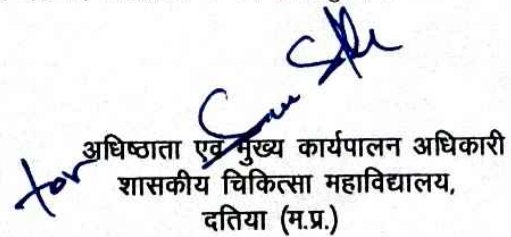 for
अधिष्ठाता एवं मुख्य कार्यपालन अधिकारी
शासकीय चिकित्सा महाविद्यालय,
दतिया (म.प्र.)